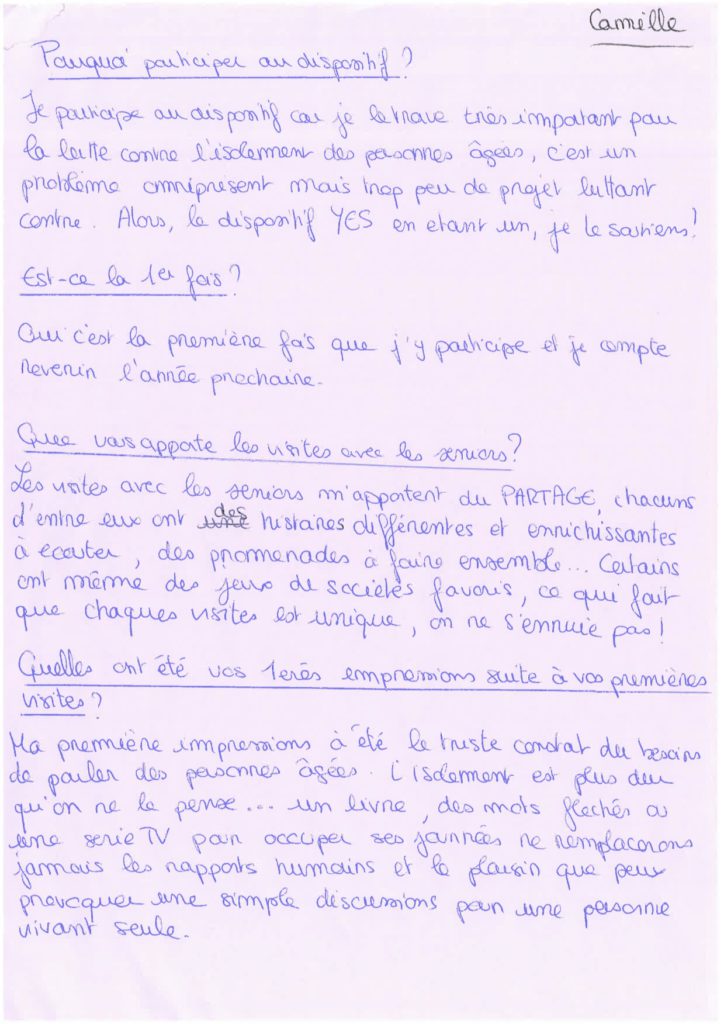 Camille
Pourquoi participer au dispositif ?
Je participe au dispositif car je le trouve très important pour
la lutte contre l'isolement des personnes âgées, c'est un
problème omniprésent mais trop peu de projet luttant
contre. Alors, le dispositif YES en etant un, je le soutiens !
Est-ce la 1er fois ?
Oui c'est la première fois que j'y participe et je compte
revenir l'année prochaine.
Que vous apporte les visites avec les seniors ?
Les visites avec les seniors m'apportent du PARTAGE, chacuns
d'entre eux ont des histoires différentes et enrichissantes
à écouter, des promenades à faire ensemble... Certains
ont même des jeux de sociétés favoris, ce qui fait
que chaques visites est unique, on ne s'ennuie pas !
Quelles ont été vos 1erès empressions suite à vos premières
visites ?
Ma première impressions à été le triste constat du besoins
de parler des personnes âgées. L'isolement est plus dur
qu'on ne le pense... un livre, des mots flechés ou
une serie TV pour occuper ses journées ne remplacerons
jamais les rapports humains et le plaisir que peux
provoquer une simple discussions pour une personne
vivant seule.